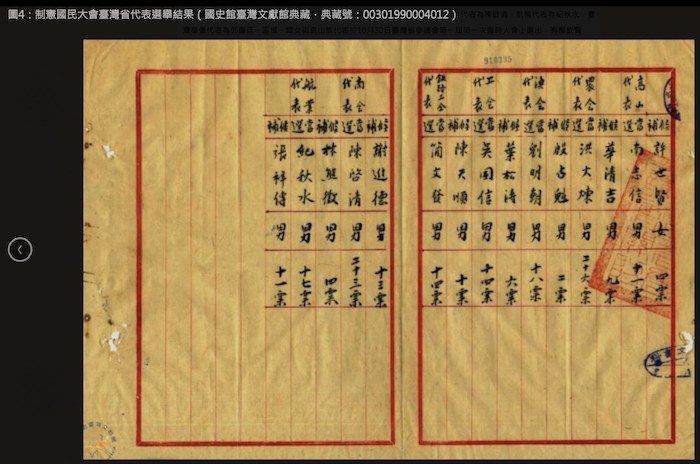 圖4：制憲國民大會臺灣省代表選舉結果（國史館臺灣文獻館典藏．典藏號：00301990004012）
候補 許世賢 女 四票
高山代表 當選 南志信 男 十一票
候補 華清吉 男 九票
農會代表 當選 洪火煉 男 二十六票
候補 殷占魁 男 二票
漁會代表 當選 劉明朝 男 十八票
候補 葉松濤 男 六票
工會代表 當選 吳國信 男 十四票
候補 陳天順 男 十票
代表 當選 簡文發 男 十四票
候補 謝進德 男 十三票
商會代表 當選 陳啓清 男 二十三票
候補 林熊徵 男 四票
航業代表 當選 紀秋水 男 十七票
候補 張祥傳 男 十一票